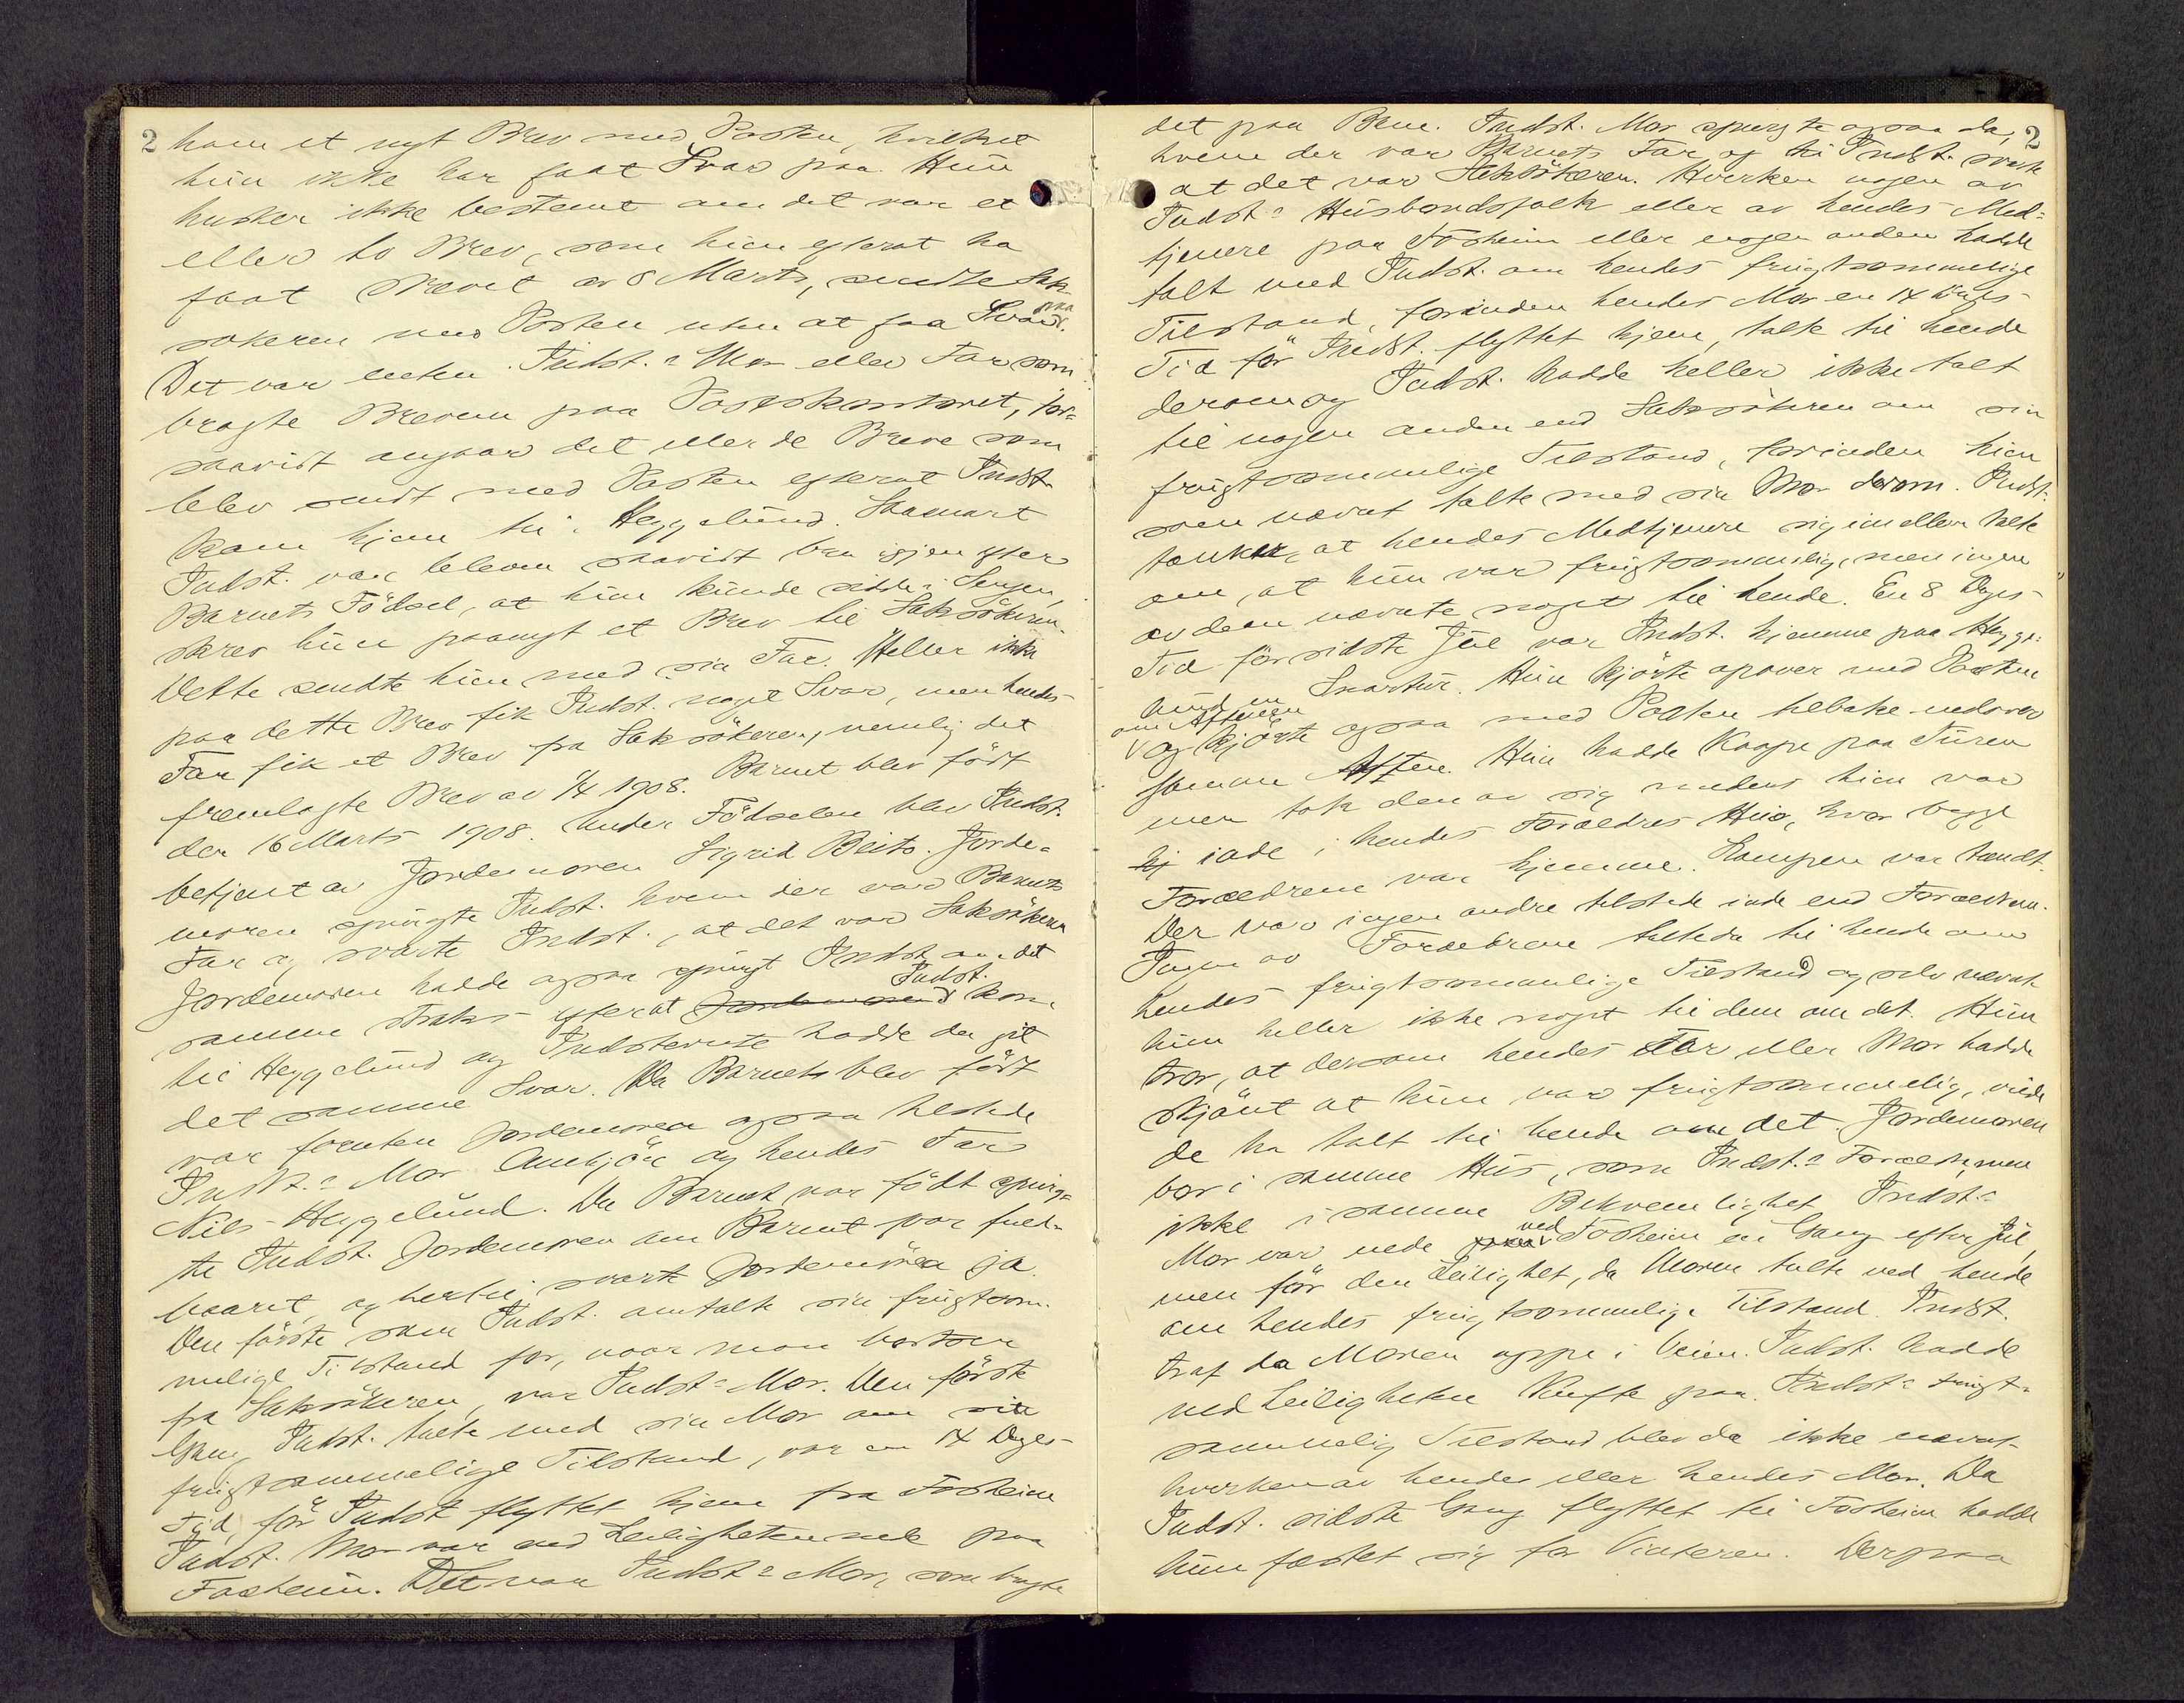 2
ham et nyt Brev med Posten, hvilket
hun ikke har faat Svar paa. Hun
husker ikke bestemt om det var et
eller to Brev, som hun efterat ha
faat Brevet av 8 Marts, sendte Sak-
søkeren med Posten uten at faa Svar paa.
Det var enten Indst.s Mor eller Far som
bragte Brevene paa Postkontoret, for-
saavidt angaar det eller de Breve som
blev sendt med Posten efterat Indst.
kom hjem til Heggelund. Saasnart
Indst. var bleven saavidt bra igjen efter
Barnets Födsel, at hun kunde sidde i Sengen,
skrev hun paanyt et Brev til Saksökeren.
Dette sendte hun med sin Far. Heller ikke
paa dette Brev fik Indst. noget Svar, men hendes
Far fik et Brev fra Saksökeren, nemlig det
fremlagte Brev av 1/4 1908. Barnet blev födt
den 16 Marts 1908. Under Födselen blev Indst.
betjent av Jordemoren Sigrid Beito. Jorde-
moren spurgte Indst. hvem der var Barnets
Far og svarte Indst., at det var Saksökeren
Jordemoren hadde ogsaa spurgt Indst. om det
samme straks efterat Jordemoren Indst. kom
til Heggelund og Indstevnte hadde da git
det samme Svar. Da Barnet blev födt
var foruten Jordemoren ogsaa tilstede
Indst.s Mor Ambjör og hendes Far
Nils Heggelund. Da Barnet var födt spurg-
te Indst. Jordemoren om Barnet var fuld-
baaret, og hertil svarte Jordemoren ja.
Den förste som Indst. omtalte sin frugtsom-
melige Tilstand for, naar man bortser
fra Saksökeren, var Indst.s Mor. Den förste
Gang Indst. talte med sin Mor om sin
frugtsommelige Tilstand, var en 14 Dages
Tid, för Indst. flyttet hjem fra Fosheim
Indst. Mor var ved Leiligheten nede paa
Fosheim. Det var Indst.s Mor, som bragte
2
det paa Bane. Indst. Mor spurgte ogsaa da,
hvem der var Barnets Far og til Indst. svarte
at det var Saksökeren. Hverken nogen av
Indst.s Husbondsfolk eller av hendes Med-
tjenere paa Fosheim eller nogen anden hadde
talt med Indst. om hendes frugtsommelige
Tilstand, forinden hendes Mor en 14 Dages
Tid för Indst. flyttet hjem, talte til hende
derom og Indst. hadde heller ikke talt
til nogen anden end Saksökeren om sin
frugtsommelige Tilstand, forinden hun
som nævnt talte med sin Mor derom. Indst.
tænker, at hendes Medtjenere sig imellem talte
om, at hun var frugtsommelig, men ingen
av dem nævnte noget til hende. En 8 Dages
Tid för sidste Jul var Indst. hjemme paa Hegge-
lund en Snartur. Hun kjörte opover med Posten
om Aftenen
og kjörte ogsaa med Posten tilbake nedover
samme Aften. Hun hadde Kaape paa Turen
men tok den av sig medens hun var
hj inde i hendes Forældres Hus, hvor begge
Forældrene var hjemme. Lampen var tændt.
Der var ingen andre tilstede inde end Forældrene.
Ingen av Forældrene talte da til hende om
hendes frugtsommelige Tilstand og selv nævnte
hun heller ikke noget til dem om det. Hun
tror, at dersom hendes Far eller Mor hadde
skjönt at hun var frugtsommelig, vilde
de ha talt til hende om det. Jordemoren
bor i samme Hus, som Indst.s Forældre, men
ikke i samme Bekvemlighet. Indst.s
Mor var nede ved Fosheim en Gang efter Jul,
men för den Leilighet, da Moren talte ved hende
om hendes frugtsommelige Tilstand. Indst.
traf da Moren oppe i Veien. Indst. hadde
ved Leiligheten Kufte paa. Indst.s frugt-
sommelig Tilstand blev da ikke nævnt
hverken av hende eller hendes Mor. Da
Indst. sidste Gang flyttet til Fosheim hadde
hun fæstet sig for Vinteren. Derpaa